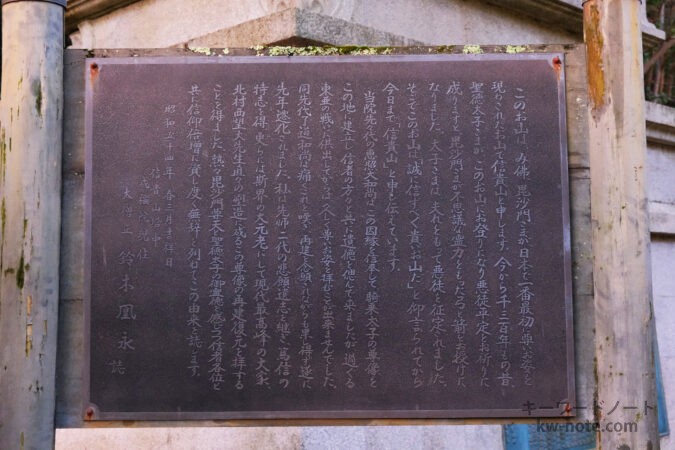 このお山は、み佛 毘沙門さまが日本で一番最初に尊いお姿を
現わされたお山で信貴山と申します。今から千三百年もの昔、
聖徳太子さまが、このお山にお登りになり悪徒平定をお祈りに
成りますと、毘沙門さまが不思議な霊力をもった
なりました。太子さまは、夫れをもって悪徒を征定されました。
そこでこのお山は「誠に信ずべく貴ぶべきお山だ」と仰言られてから
今日まで「信貴山」と申し伝えています。
当院先々代の
この地に建立し信者の方々と共に遺徳を偲んで来ましたが過ぐる
東亜の戦いに供出してからは久しく尊いお姿を拝むことが出来ませんでした。
同先代
先年遷化されました。私は先師二代の悲願遺志を継ぎ、篤信の
特志を得、更らには斯界の大元老にして現代最高峰の大家、
北村西望大先生直々の創造に成るこの尊像の再建復元を拝する
ことを得ました。
共に信仰倍増に資し度く無辞を列ねてこの由来を誌します。
昭和五十四年 春三月吉祥日
信貴山
成福院現住
大僧正 鈴木凰永 誌
キーワードノート
kw-note.com